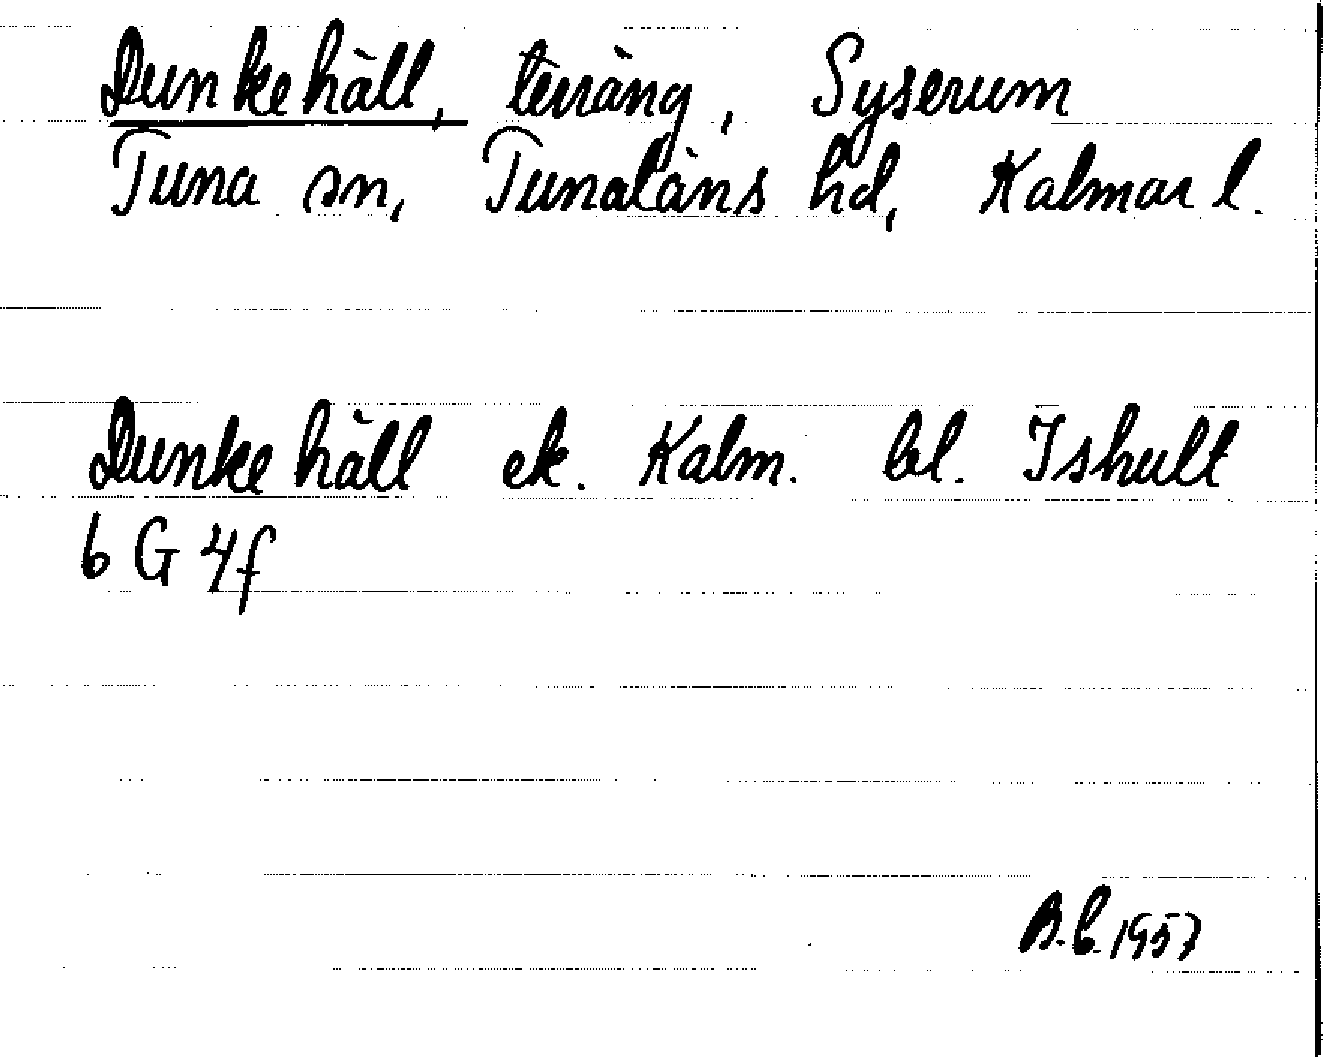 Dunkehäll, terräng, Syserum
Tuna sn, Tunaläns hd, Kalmar l.
Dunkehäll ek. Kalm. bl. Ishult
6 G 4f
B.C. 1957